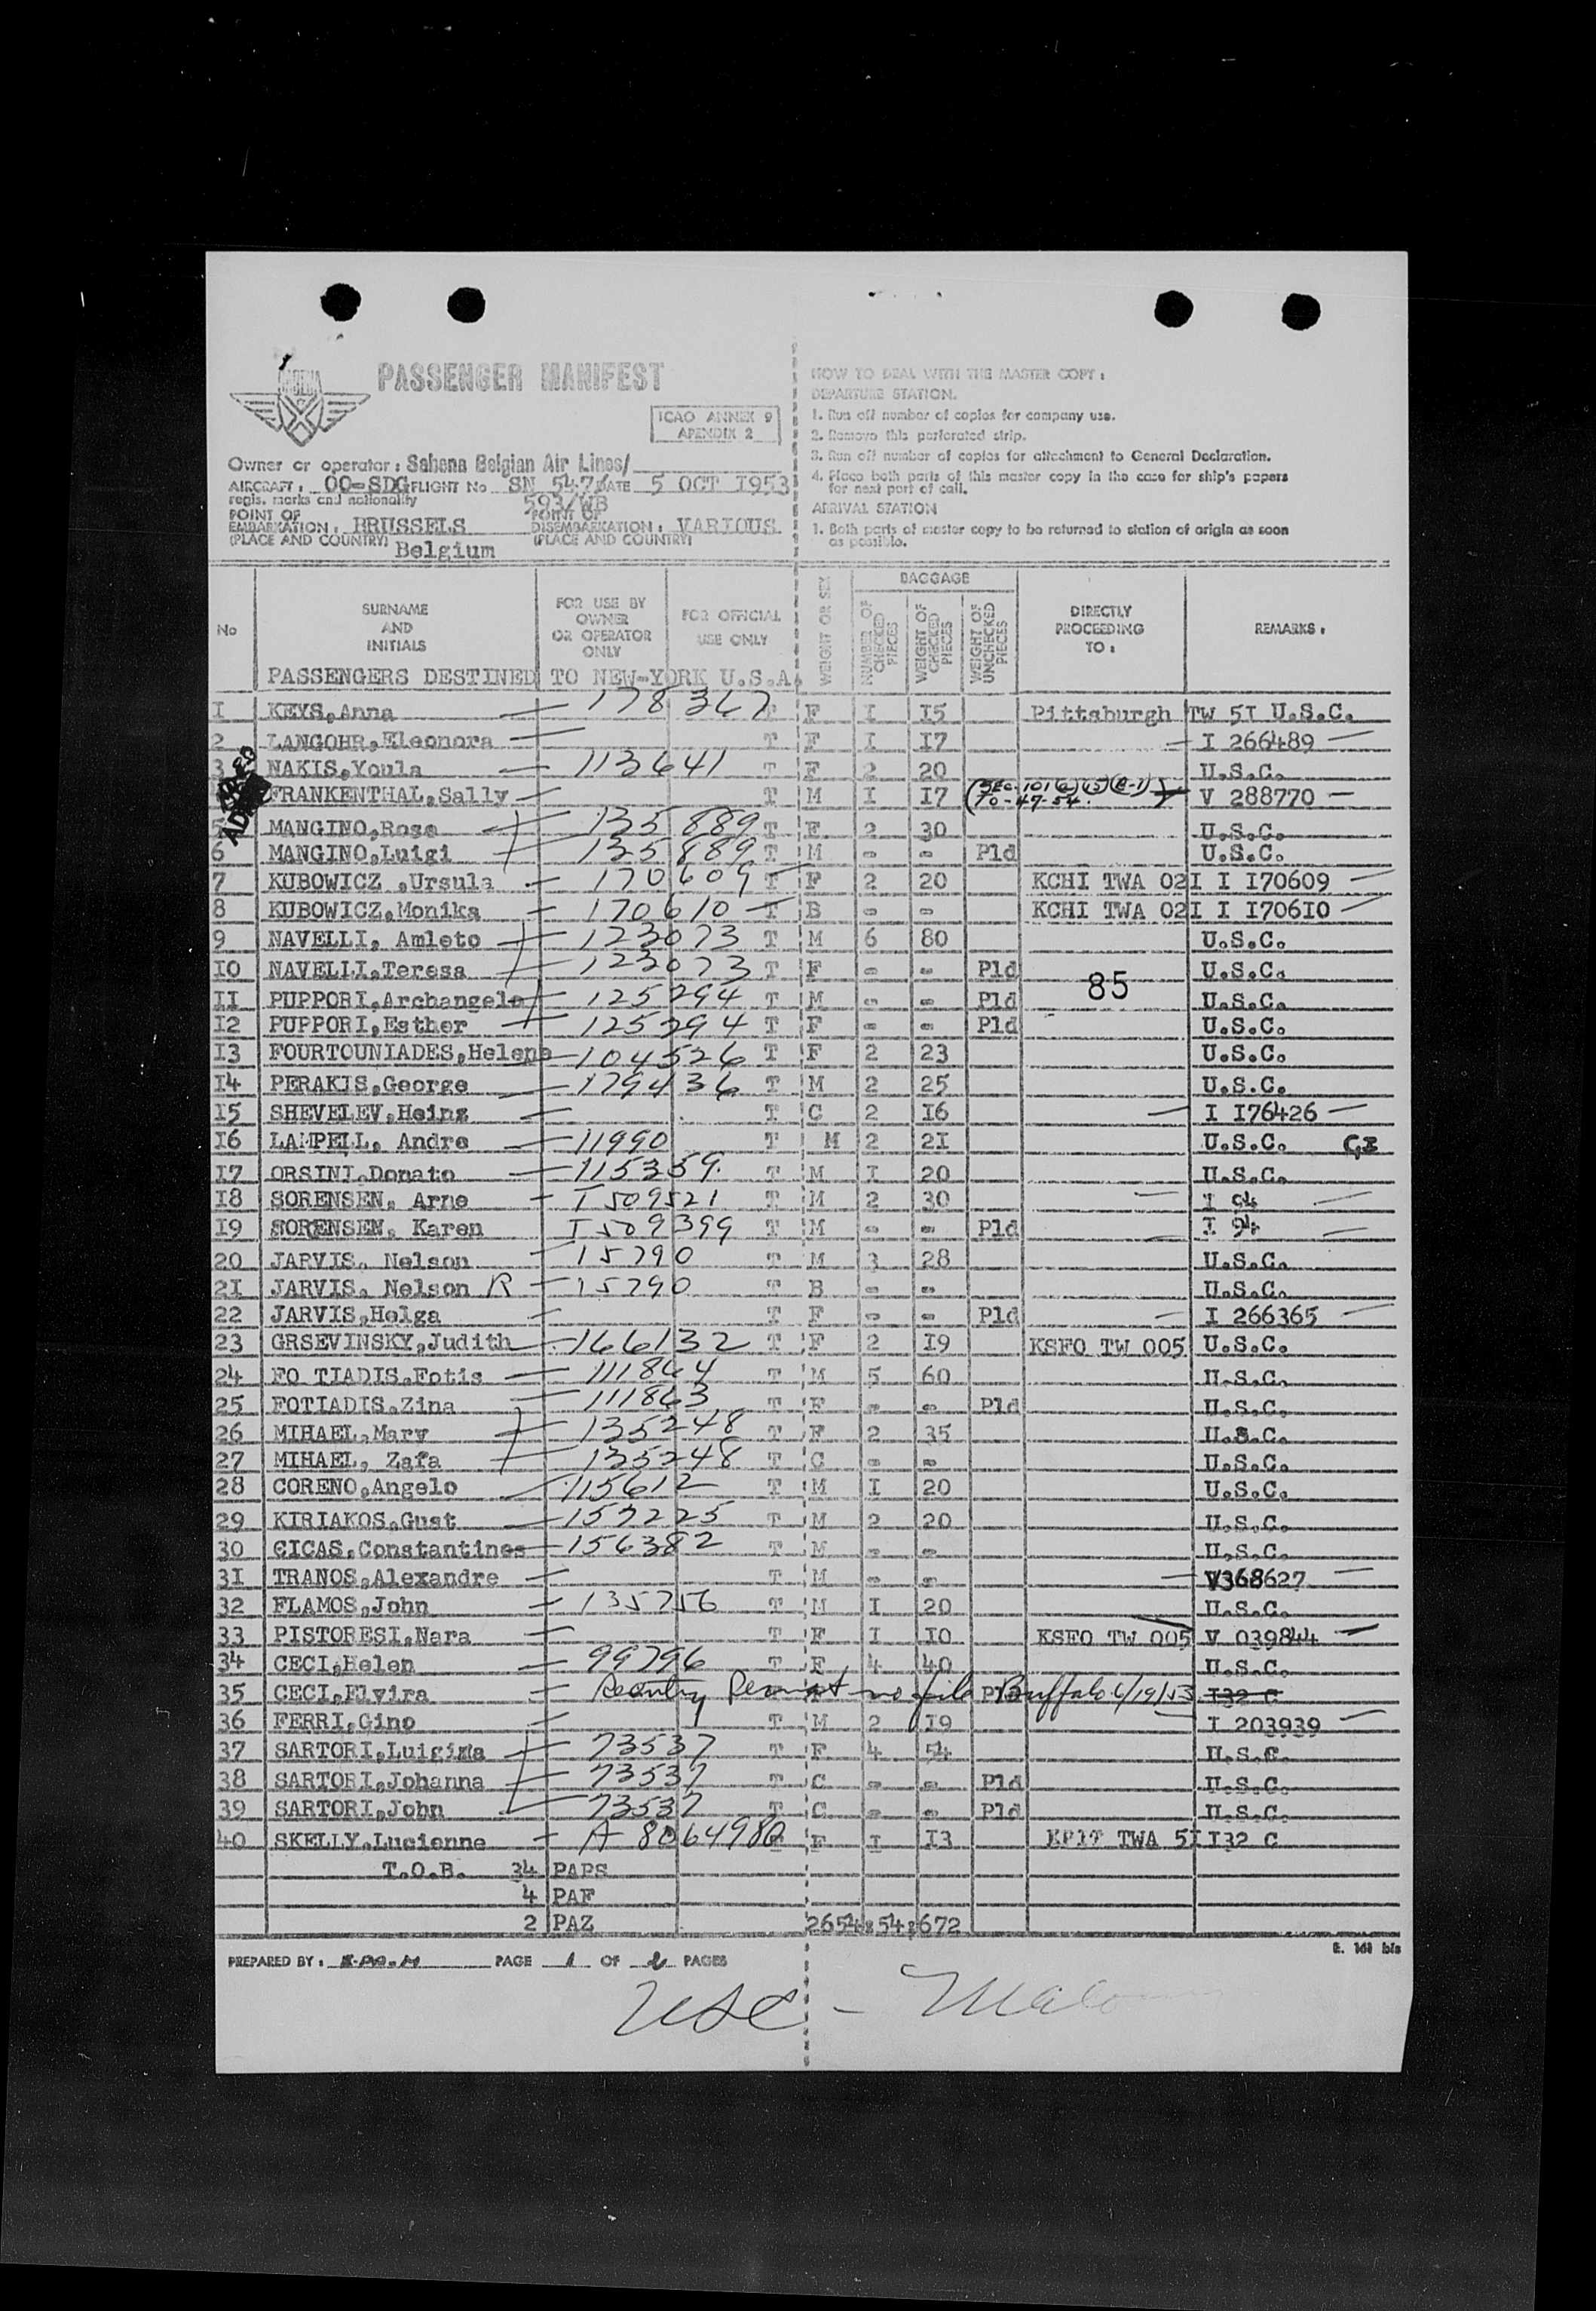 PASSENGER MANIFEST
SABENA
ICAO ANNEX 9
APENDIX 2
Owner or operator : Sabena Belgian Air Lines/
AIRCRAFT : OO-SDG FLIGHT No SN 547/ DATE 5 OCT I953
regis. marks and nationality 593/WB
POINT OF EMBARKATION : BRUSSELS POINT OF DISEMBARKATION : VARIOUS
(PLACE AND COUNTRY) Belgium (PLACE AND COUNTRY)
HOW TO DEAL WITH THE MASTER COPY :
DEPARTURE STATION.
1. Run off number of copies for company use.
2. Remove this perforated strip.
3. Run off number of copies for attachment to General Declaration.
4. Place both parts of this master copy in the case for ship's papers
for next port of call.
ARRIVAL STATION
1. Both parts of master copy to be returned to station of origin as soon
as possible.
No SURNAME AND INITIALS FOR USE BY OWNER OR OPERATOR ONLY FOR OFFICIAL USE ONLY WEIGHT OR SEX BAGGAGE NUMBER OF CHECKED PIECES WEIGHT OF CHECKED PIECES WEIGHT OF UNCHECKED PIECES DIRECTLY PROCEEDING TO : REMARKS :
PASSENGERS DESTINED TO NEW-YORK U.S.A.
I KEYS,Anna 178367 T F I I5 Pittsburgh TW 5I U.S.C.
2 LANGOHR,Eleonora T F I I7 I 266489
3 NAKIS,Youla 113641 T F 2 20 U.S.C.
FRANKENTHAL,Sally T M I I7 V 288770
5 MANGINO,Rosa 135889 T F 2 30 U.S.C.
6 MANGINO,Luigi 135889 T M - - Pld U.S.C.
7 KUBOWICZ ,Ursula 170609 T F 2 20 KCHI TWA 02I I I70609
8 KUBOWICZ,Monika 170610 T B - - KCHI TWA 02I I I706I0
9 NAVELLI, Amleto 123073 T M 6 80 U.S.C.
IO NAVELLI,Teresa 123073 T F - - Pld U.S.C.
85
II PUPPORI,Archangelo 125294 T M - - Pld U.S.C.
I2 PUPPORI,Esther 125294 T F - - Pld U.S.C.
I3 FOURTOUNIADES,Helene 104526 T F 2 23 U.S.C.
I4 PERAKIS,George 179436 T M 2 25 U.S.C.
I5 SHEVELEV,Heinz T C 2 I6 I I76426
I6 LAMPELL, Andre 11990 T M 2 2I U.S.C.
I7 ORSINI,Donato 115359 T M I 20 U.S.C.
I8 SORENSEN, Arne T 509521 T M 2 30 I 94
I9 SORENSEN, Karen T 509399 T M - - Pld I 94
20 JARVIS, Nelson 15790 T M 3 28 U.S.C.
2I JARVIS, Nelson R 15790 T B - - U.S.C.
22 JARVIS,Helga T F - - Pld I 266365
23 GRSEVINSKY,Judith 166132 T F 2 I9 KSFO TW 005 U.S.C.
24 FO TIADIS,Fotis 111864 T M 5 60 U.S.C.
25 FOTIADIS,Zina 111863 T F - - Pld U.S.C.
26 MIHAEL,Mary 135248 T F 2 35 U.S.C.
27 MIHAEL, Zafa 135248 T C - - U.S.C.
28 CORENO,Angelo 115612 T M I 20 U.S.C.
29 KIRIAKOS,Gust 157225 T M 2 20 U.S.C.
30 GICAS,Constantines 156382 T M - - U.S.C.
3I TRANOS,Alexandre T M - - V368627
32 FLAMOS,John 135756 T M I 20 U.S.C.
33 PISTORESI,Nara T F I IO KSFO TW 005 V 039844
34 CECI,Helen 99796 T F 4 40 U.S.C.
35 CECI,Elvira Reentry Permit no file Pld Buffalo 6/19/53 I32 C
36 FERRI,Gino T M 2 I9 I 203939
37 SARTORI,Luigina 73537 T F 4 54 U.S.C.
38 SARTORI,Johanna 73537 T C - - Pld U.S.C.
39 SARTORI,John 73537 T C - - Pld U.S.C.
40 SKELLY,Lucienne A 8064980 F I I3 KPIT TWA 5I I32 C
T.O.B. 34 PAPS
4 PAF
2 PAZ 2654:54:672
E. 161 bis
PREPARED BY : PAGE 1 OF 2 PAGES
USC -